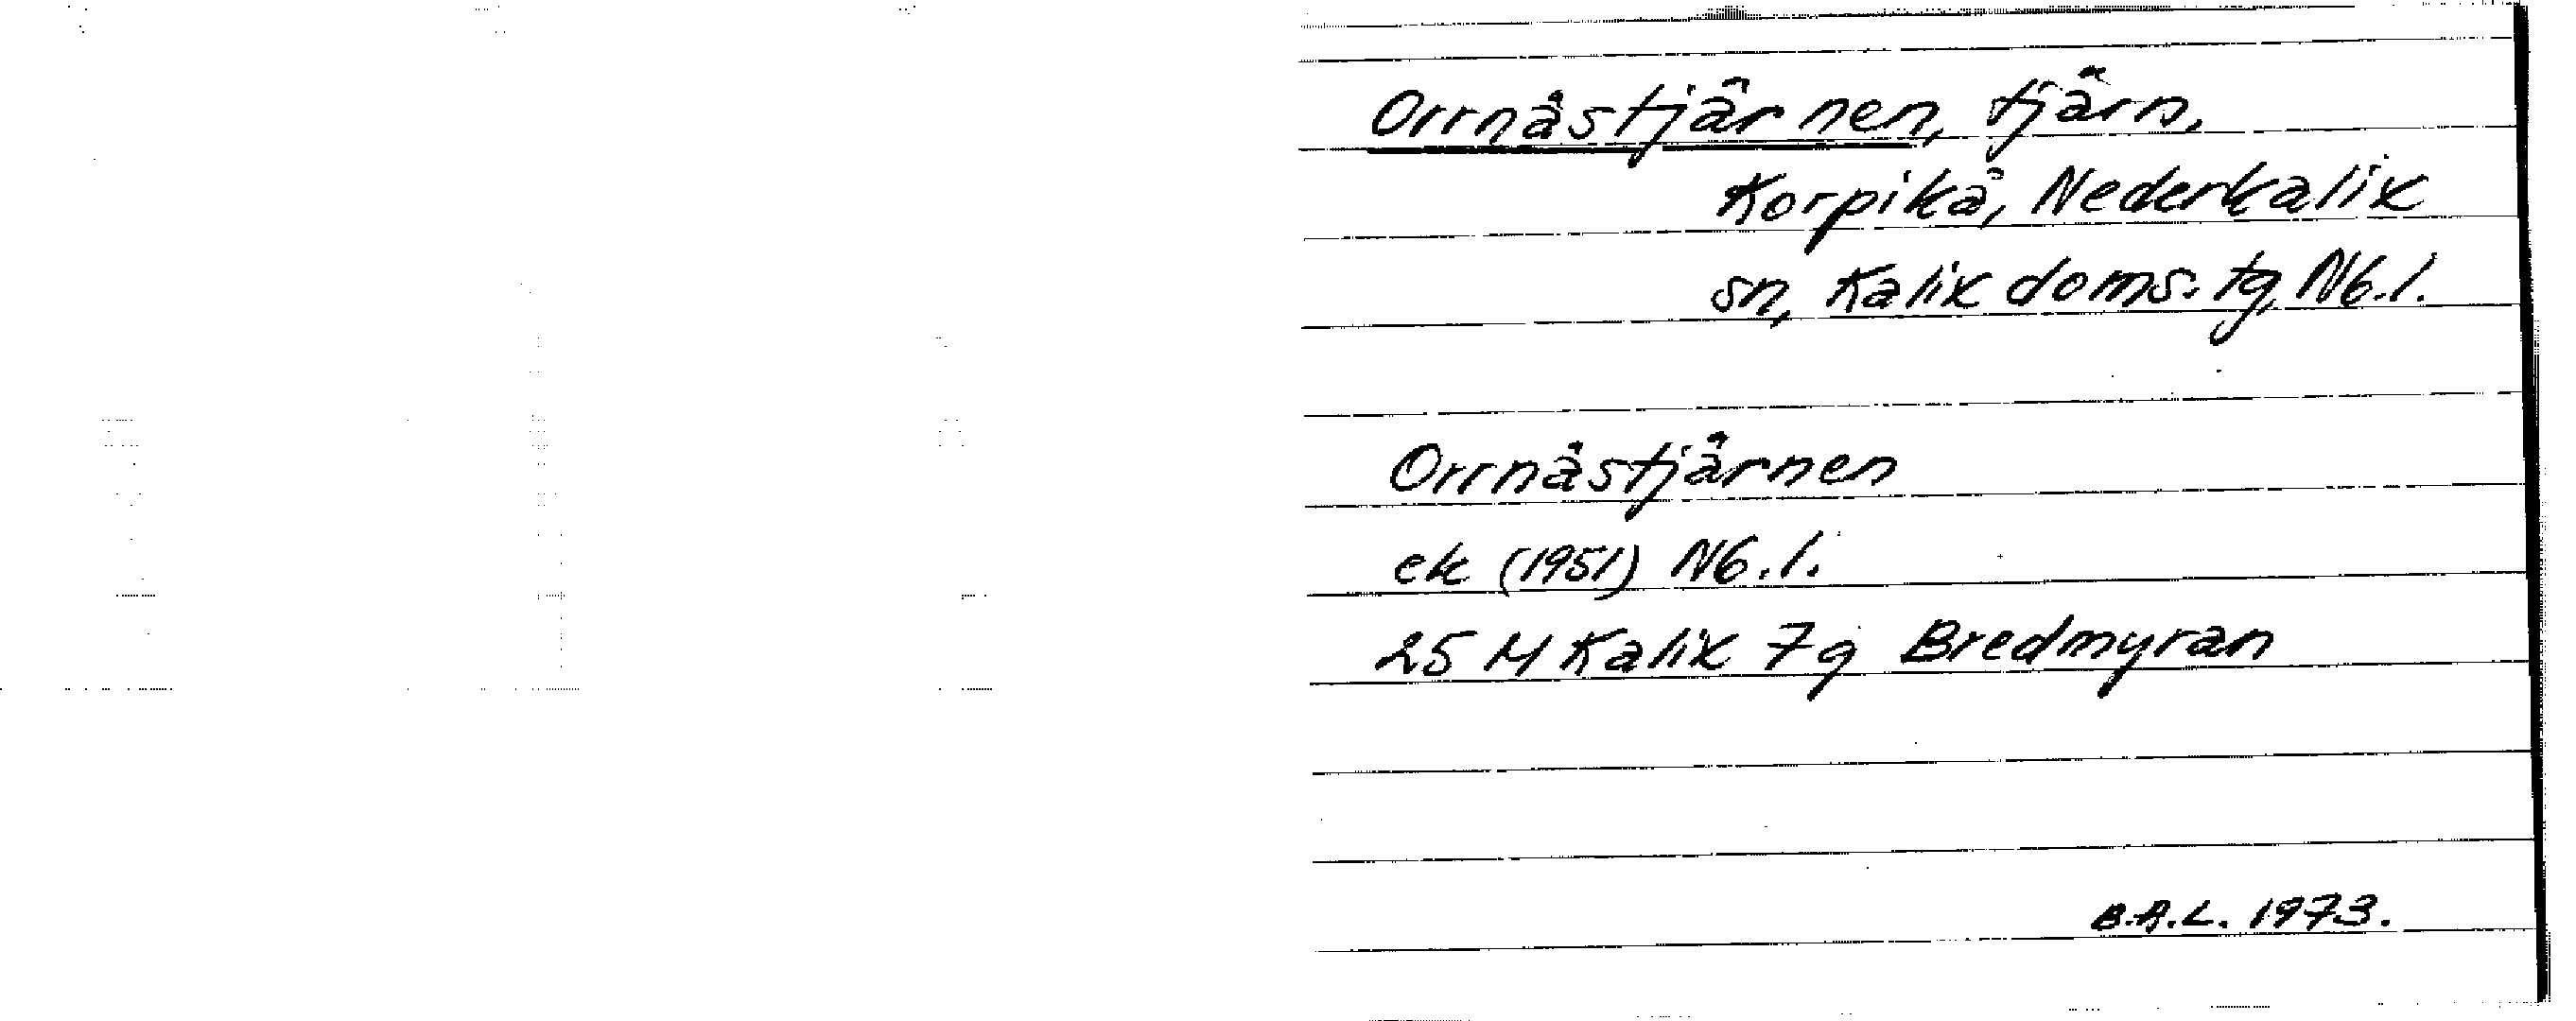 Orrnästjärnen, tjärn,
Korpikå, Nederkalix
sn, Kalix doms. tg, Nb.l.
Orrnästjärnen
ek (1951) Nb.l.
25 M Kalix 7g Bredmyran
B.A.L. 1973.